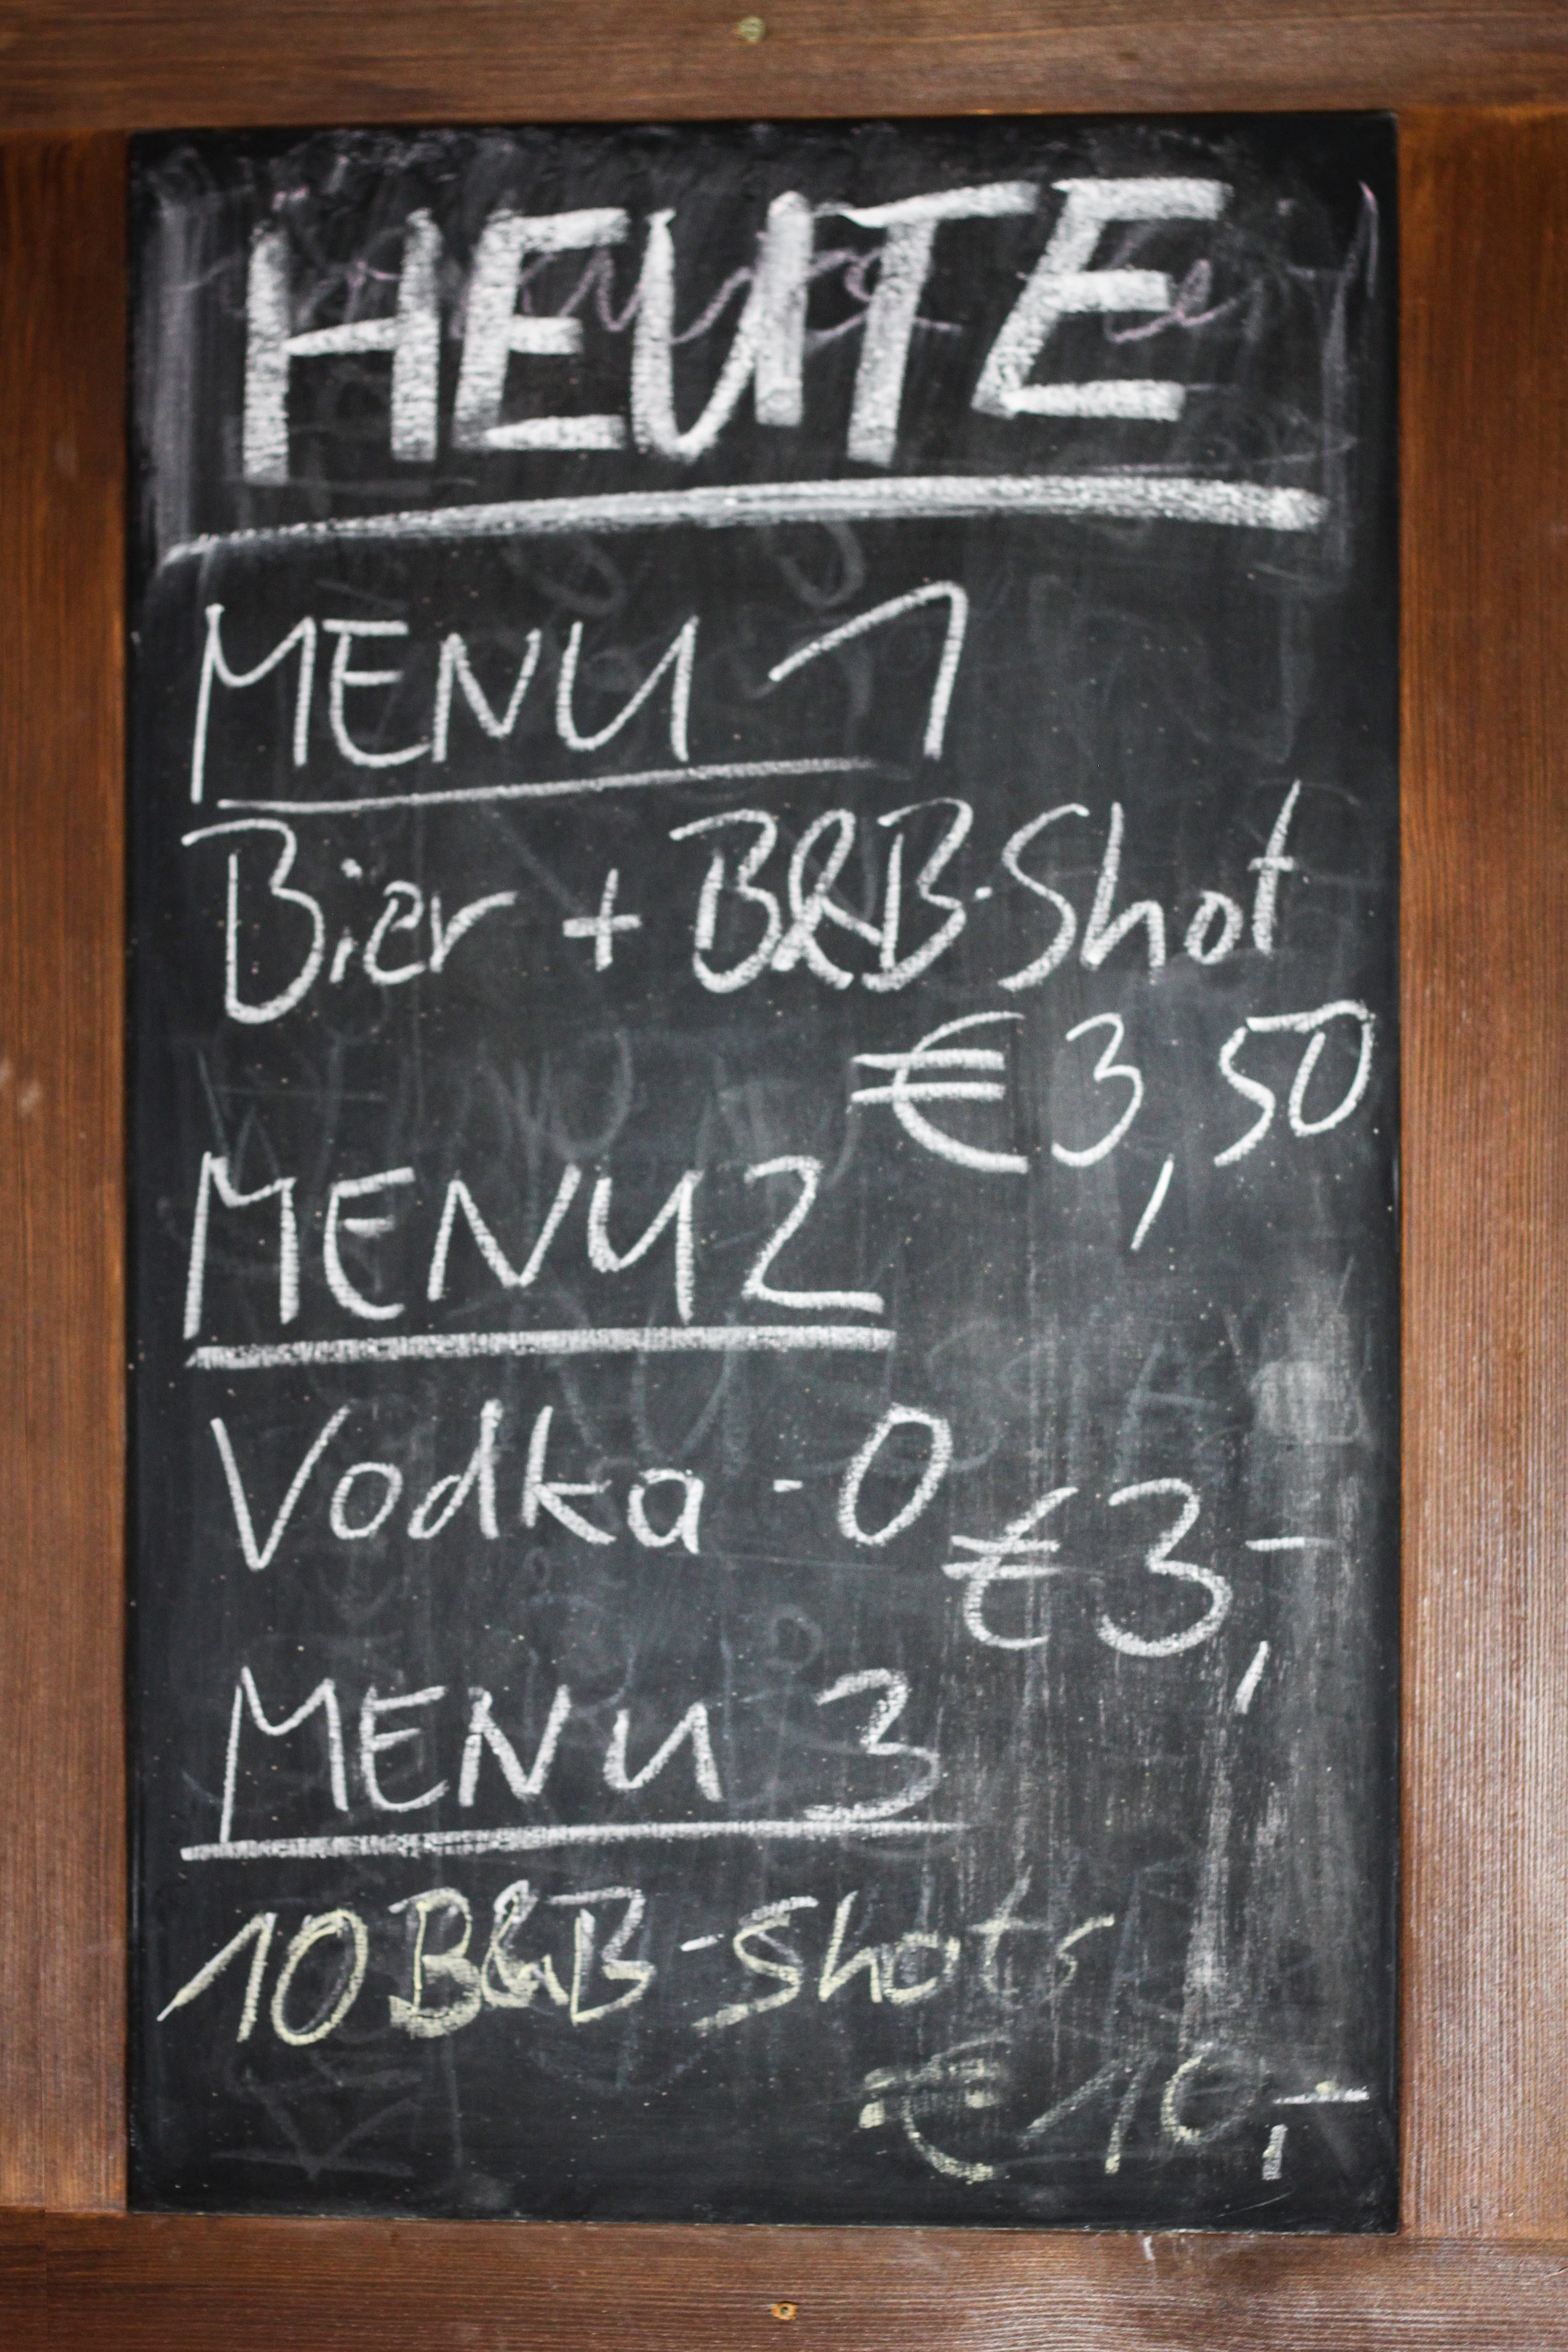 HEUTE
MENU 1
Bier + B&B-Shot
€ 3,50
MENU 2
Vodka - O
€ 3,-
MENU 3
10 B&B-Shots
€ 10,-